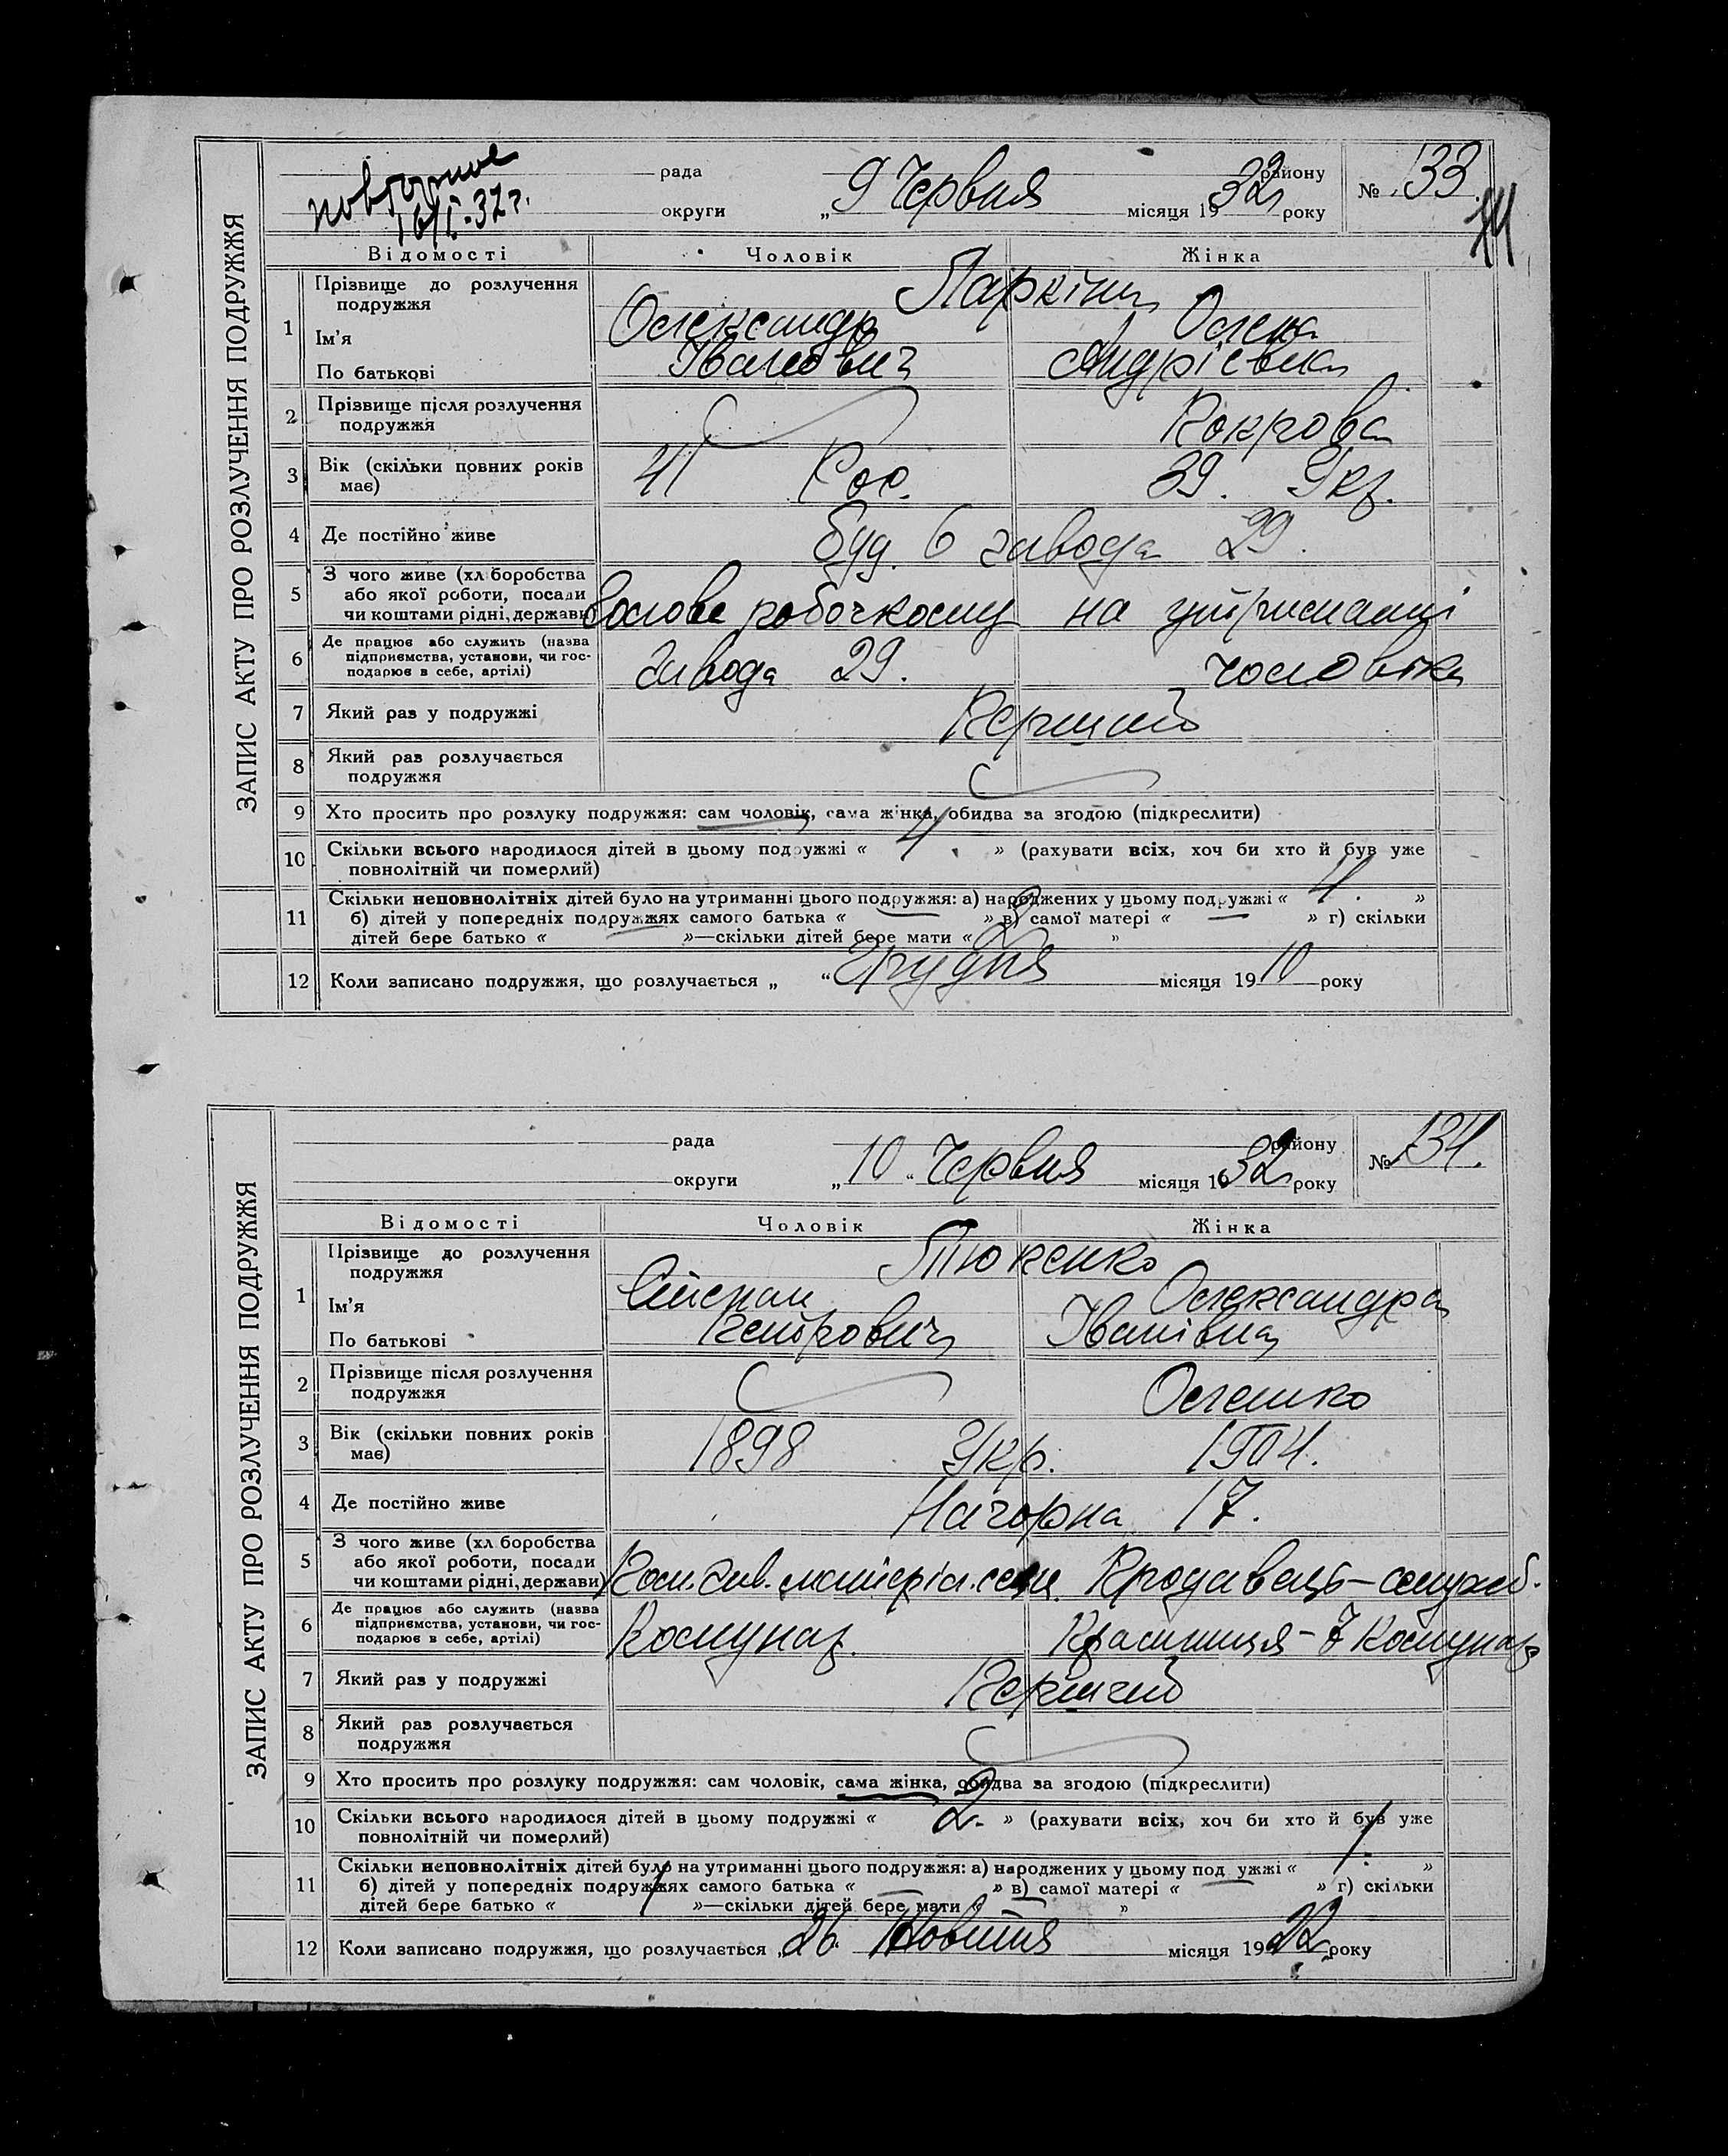 ЗАПИС АКТУ ПРО РОЗЛУЧЕННЯ ПОДРУЖЖЯ
повторное
16/I-37 г.
рада
району
№ 133
74
округи „9 Червня місяця 1932 року
Відомості Чоловік Жінка
1 Прізвище до розлучення подружжя Паркіни
Ім'я Олександр Олена
По батькові Іванович Андрієвна
2 Прізвище після розлучення подружжя Покрова
3 Вік (скільки повних років має) 41 Рос. 39. Укр.
4 Де постійно живе буд. 6 завода 29.
5 З чого живе (хліборобства
або якої роботи, посади
чи коштами рідні, держави) Голова робочкому на утриманні
6 Де працює або служить (назва
підприємства, установи, чи гос-
подарює в себе, артілі) Завода 29. чоловіка
7 Який раз у подружжі Перший
8 Який раз розлучається
подружжя
9 Хто просить про розлуку подружжя: сам чоловік, сама жінка, обидва за згодою (підкреслити)
10 Скільки всього народилося дітей в цьому подружжі « 4. » (рахувати всіх, хоч би хто й був уже
повнолітній чи померлий)
11 Скільки неповнолітніх дітей було на утриманні цього подружжя: а) народжених у цьому подружжі « 4. »
б) дітей у попередніх подружжях самого батька « — » в) самої матері « — » г) скільки
дітей бере батько « — »—скільки дітей бере мати « »
12 Коли записано подружжя, що розлучається „ “ Грудня місяця 1910 року
ЗАПИС АКТУ ПРО РОЗЛУЧЕННЯ ПОДРУЖЖЯ
рада
району
№ 134.
округи „10“ Червня місяця 1932 року
Відомості Чоловік Жінка
1 Прізвище до розлучення
подружжя Тюкенко
Ім'я Степан Олександра
По батькові Петрович Іванівна
2 Прізвище після розлучення
подружжя Олешко
3 Вік (скільки повних років
має) 1898 Укр. 1904.
4 Де постійно живе Нагорна 17.
5 З чого живе (хліборобства
або якої роботи, посади
чи коштами рідні, держави) Пом. зав. Продавець-служб.
6 Де працює або служить (назва
підприємства, установи, чи гос-
подарює в себе, артілі) Комунар. Крамниця-7 Комунар
7 Який раз у подружжі Перший
8 Який раз розлучається
подружжя
9 Хто просить про розлуку подружжя: сам чоловік, сама жінка, обидва за згодою (підкреслити)
10 Скільки всього народилося дітей в цьому подружжі « 2. » (рахувати всіх, хоч би хто й був уже
повнолітній чи померлий)
11 Скільки неповнолітніх дітей було на утриманні цього подружжя: а) народжених у цьому подружжі « 1. »
б) дітей у попередніх подружжях самого батька « — » в) самої матері « — » г) скільки
дітей бере батько « 1 »—скільки дітей бере мати « »
12 Коли записано подружжя, що розлучається „26. Жовтня місяця 1922 року